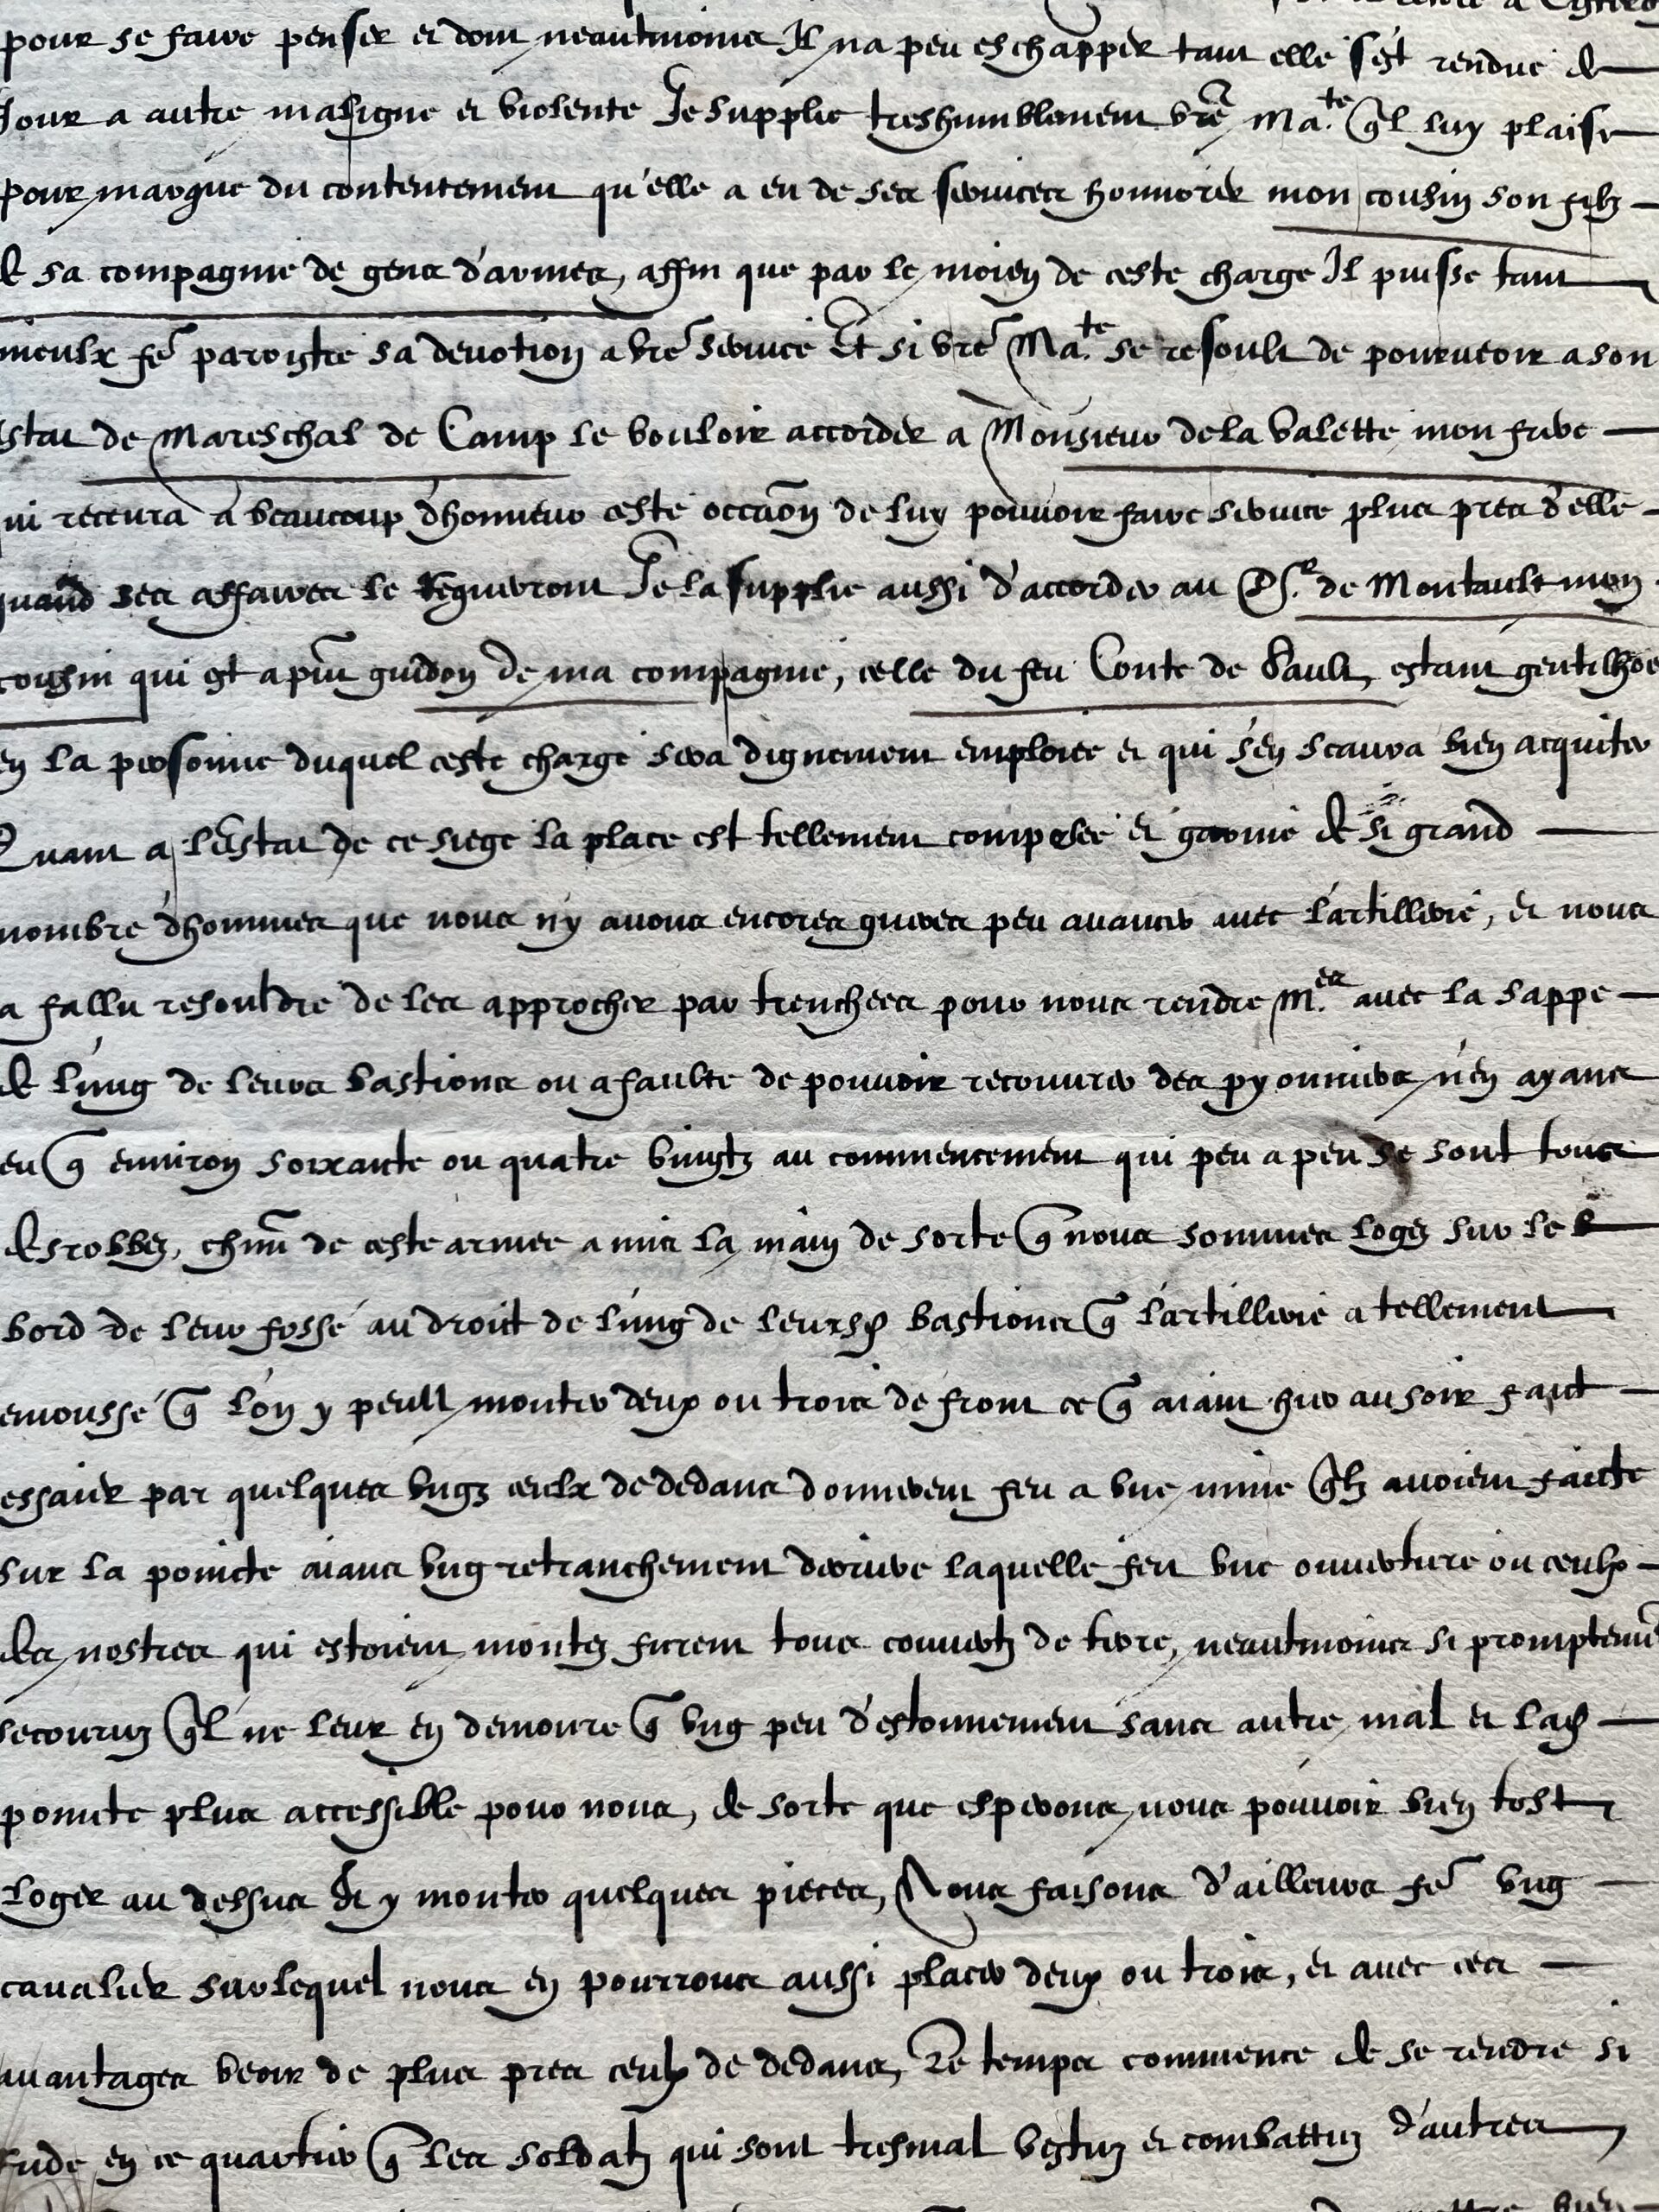 pour se faire penser et dont neantmoins Il na peu eschapper tant elle s'est rendue de
Jour a autre maligne et violente Je supplie treshumblement vre Ma.te ql luy plaise
pour marque du contentement qu'elle a eu de ses services honnorer mon cousin son filz
de sa compagnie de gens d'armes, affin que par le moien de ceste charge Il puisse tant
mieulx fe paroistre sa devotion a vre service Et si vre Ma.te se resoult de pourveoir a son
estat de Mareschal de Camp le vouloir accorder a Monsieur de la Valette mon frere
qui recevra a beaucoup d'honneur ceste occaon de luy pouvoir faire service plus pres d'elle
quand ses affaires le requerront Je la supplie aussi d'accorder au Sr. de Montault mon
cousin qui est a pnt guidon de ma compagnie, celle du feu Conte de Sault, estant gentilhoe
en la personne duquel ceste charge sera dignement emploiee et qui s'en scaura bien acquiter
Quant a l'Estat de ce siege la place est tellement composee et garnie de si grand
nombre d'hommes que nous n'y avons encores gueres peu avancer avec l'artillerie, et nous
a fallu resouldre de les approcher par trenchees pour nous rendre M.es avec la sappe
de l'ung de leurs bastions ou a faulte de pouvoir recouvrer des pyonniers n'en ayans
eu q environ soixante ou quatre vingtz au commencement qui peu a peu se sont tous
desrobbez, chun de ceste armee a mis la main de sorte q nous sommes logez sur le
bord de leur fossé au droit de l'ung de leursd bastions q l'artillerie a tellement
emoussé q l'on y peult monter deux ou trois de front ce q aiant hier au soir faict
essaier par quelques ungs ceulx de dedans donnerent feu a une mine qlz avoient faicte
sur la poincte aians ung retranchement derriere laquelle feit une ouverture ou ceulx
des nostres qui estoient montez furent tous couvertz de terre, neantmoins si promptemt
secouruz ql ne leur en demoure q ung peu d'estonnement sans autre mal et lad
poincte plus accessible pour nous, de sorte que esperons nous pouvoir bien tost
loger au dessus Et y monter quelques pieces, Nous faisons d'ailleurs fe ung
cavalier sur lequel nous en pourrons aussi placer deux ou trois, et avec ces
avantages veoir de plus pres ceulx de dedans, Le temps commence de se rendre si
rude en ce quartier q les soldatz qui sont tresmal vestuz et combattuz d'autres